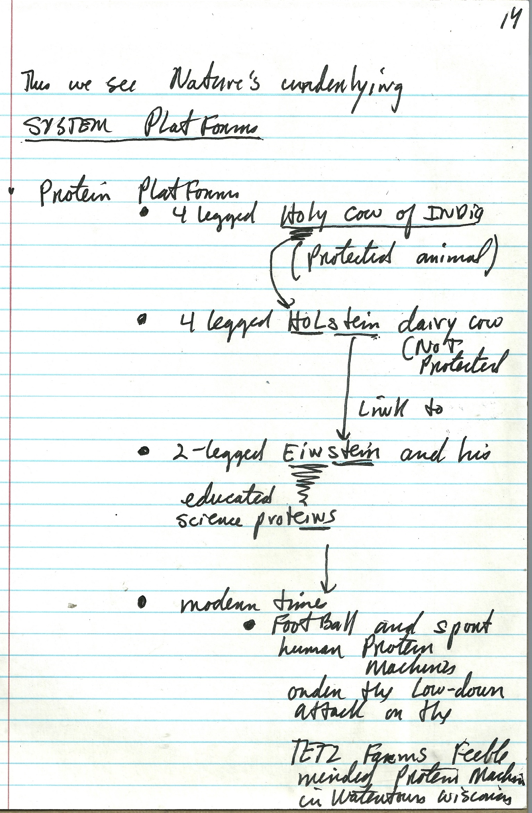 14
Thus we see Nature's underlying
SYSTEM PlatForms
• Protein PlatForms
• 4 legged Holy cow of INDia
(Protected animal)
• 4 legged HOLstein dairy cow
(NOT
Protected
Link to
• 2-legged Einstein and his
educated
science proteins
• modern time
• FootBall and sport
human Protein
Machines
onder the Low-down
attack on the
TETZ Farms Feeble
minded Protein Machin
in Watertown Wisconsin